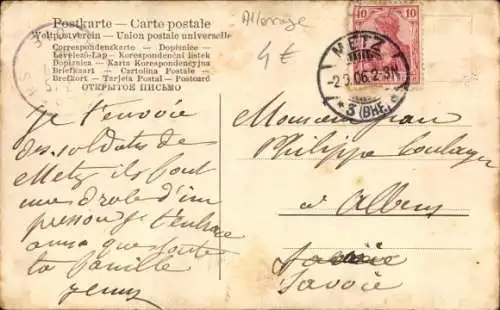 Postkarte – Carte postale
Weltpostverein – Union postale universelle
Correspondenzkarte – Dopisnice
Levelező-Lap – Korespondenční listek
Dopisnica – Karta Korespondencyjna
Briefkaart – Cartolina Postale
Brefkort – Tarjeta Postal – Postcard
ОТКРЫТОЕ ПИСЬМО
Allemagne
4 €
10 10
METZ
3 (BHF.)
Je t'envoie
des soldats de
Metz ils font
une drole d'im
pression je t'embrasse
ainsi que toute
ta famille
Jenny
Monsieur Jean
Philippe Boulanger
à Albens
Savoie